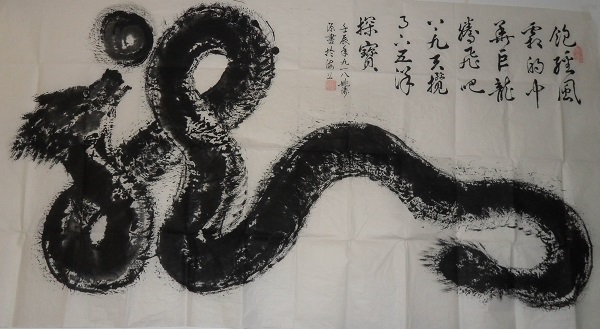 饱經風
霜的中
華巨龍
騰飛吧
上九天攬
月下五洋
探寶
壬辰年九一八
書於